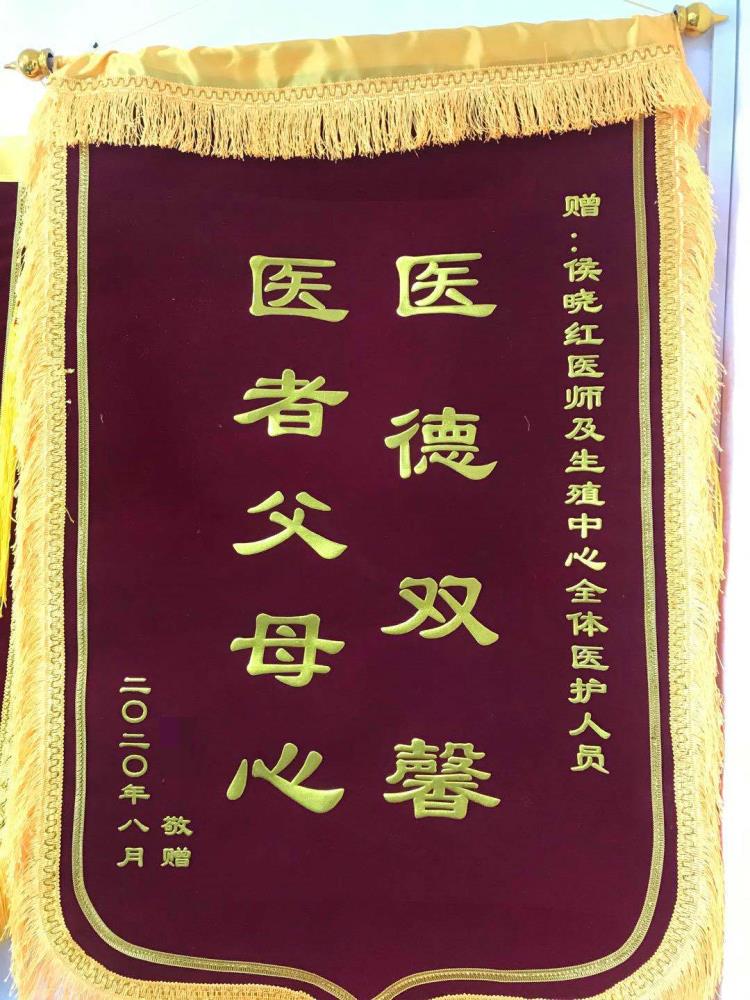 赠：侯晓红医师及生殖中心全体医护人员
医德双馨
医者父母心
敬赠
二〇二〇年八月